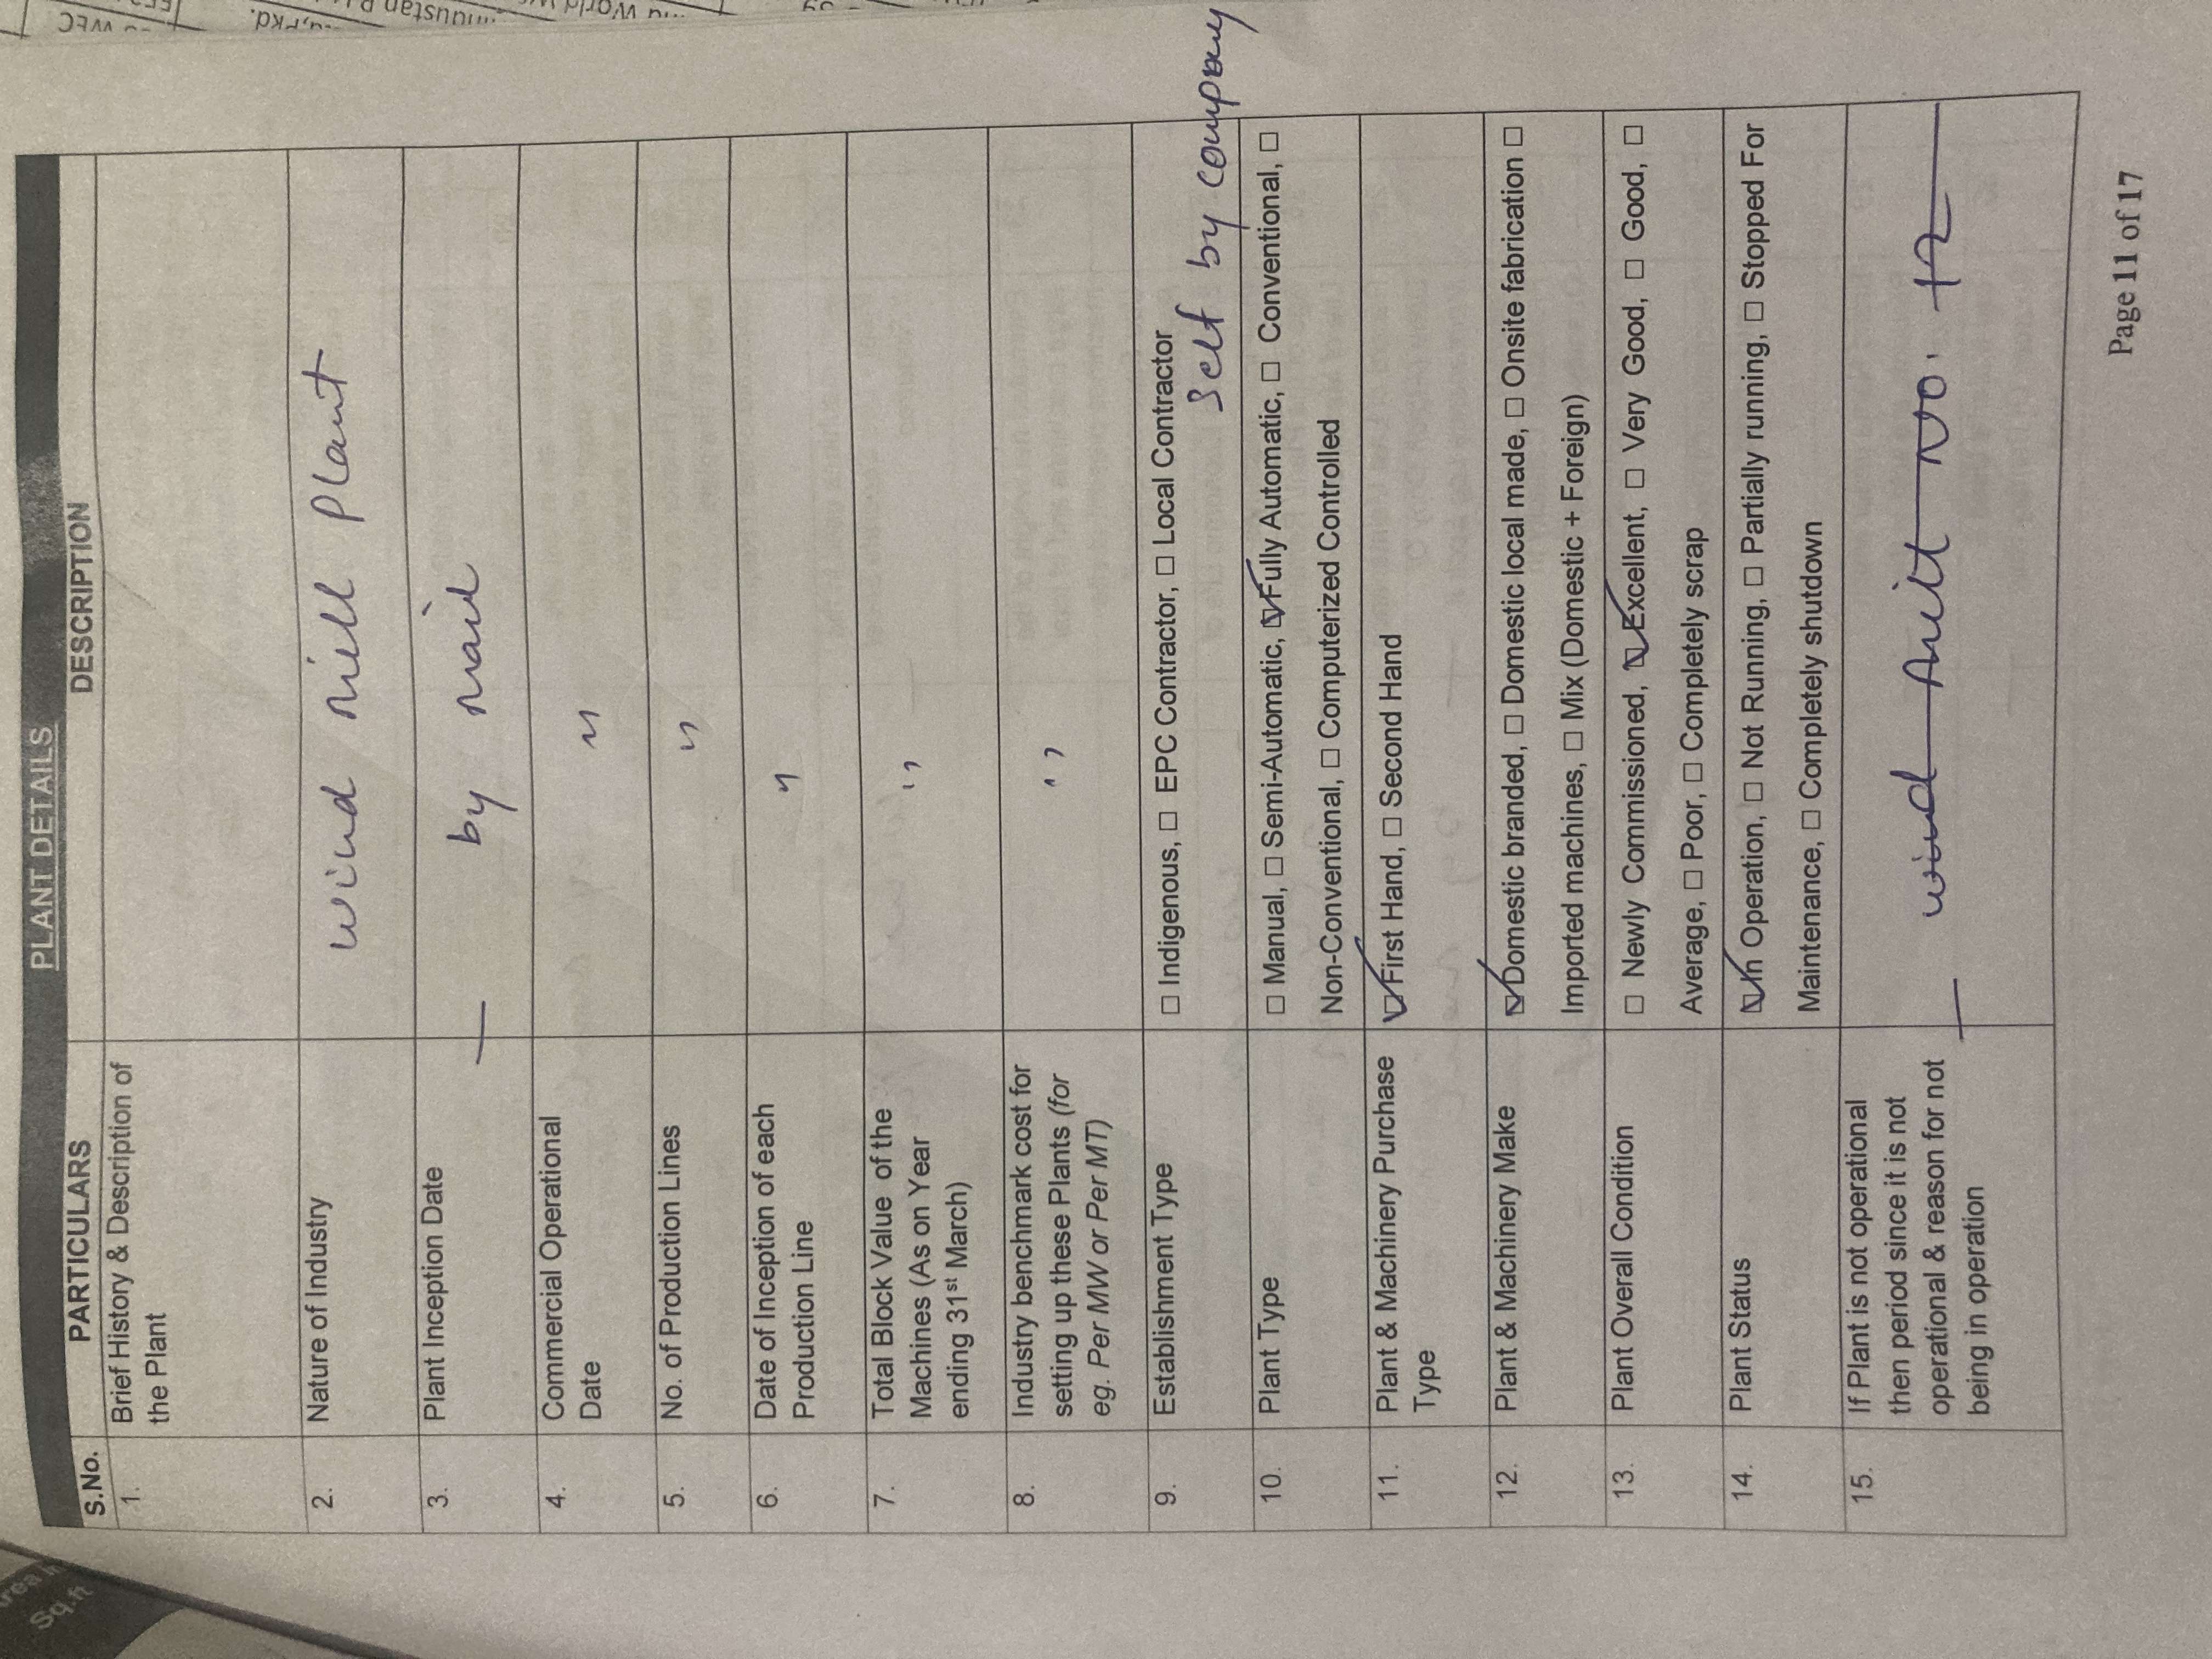 PLANT DETAILS
S.No. PARTICULARS DESCRIPTION
1. Brief History & Description of
the Plant
2. Nature of Industry wind mill Plant
3. Plant Inception Date — by mail
4. Commercial Operational
Date "
5. No. of Production Lines "
6. Date of Inception of each
Production Line "
7. Total Block Value of the
Machines (As on Year
ending 31st March) "
8. Industry benchmark cost for
setting up these Plants (for
eg. Per MW or Per MT) "
9. Establishment Type ☐ Indigenous, ☐ EPC Contractor, ☐ Local Contractor
Self by company
10. Plant Type ☐ Manual, ☐ Semi-Automatic, ☑ Fully Automatic, ☐ Conventional, ☐
Non-Conventional, ☐ Computerized Controlled
11. Plant & Machinery Purchase ☑ First Hand, ☐ Second Hand
Type
12. Plant & Machinery Make ☑ Domestic branded, ☐ Domestic local made, ☐ Onsite fabrication ☐
Imported machines, ☐ Mix (Domestic + Foreign)
13. Plant Overall Condition ☐ Newly Commissioned, ☑ Excellent, ☐ Very Good, ☐ Good, ☐
Average, ☐ Poor, ☐ Completely scrap
14. Plant Status ☑ In Operation, ☐ Not Running, ☐ Partially running, ☐ Stopped For
Maintenance, ☐ Completely shutdown
15. If Plant is not operational
then period since it is not
operational & reason for not
being in operation — wind no.
Page 11 of 17
Sq.ft